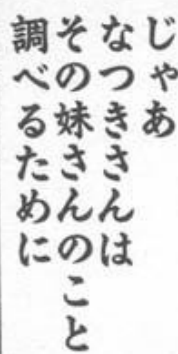 じゃあ
なつきさんは
その妹さんのこと
調べるために